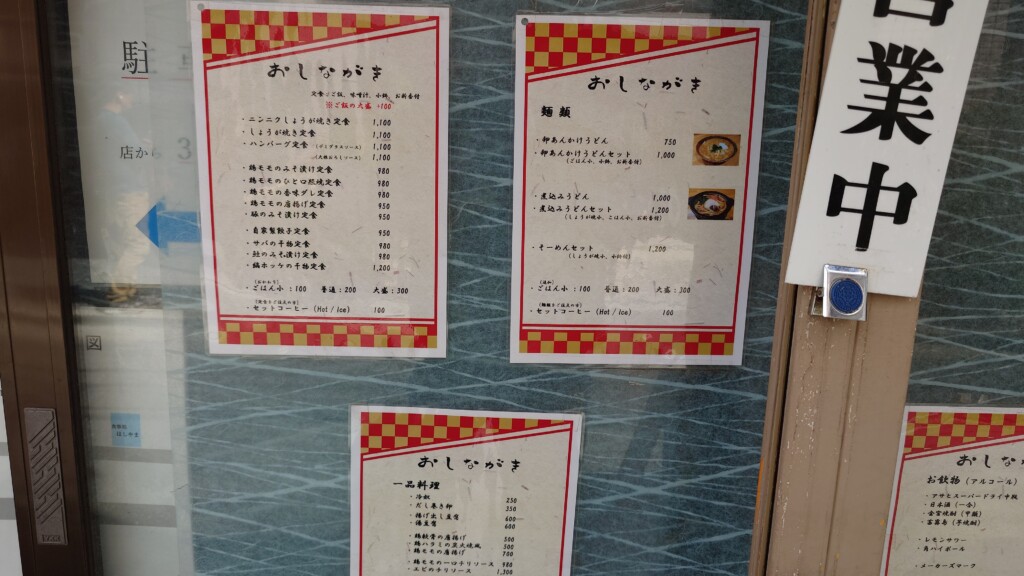 駐
店から 3
図
おしながき
定食はご飯、味噌汁、小鉢、お新香付
※ご飯の大盛 +100
・ニンニクしょうが焼き定食 1,100
・しょうが焼き定食 1,100
・ハンバーグ定食 (デミグラスソース) 1,100
(大根おろしソース) 1,100
・鶏モモのみそ漬け定食 980
・鶏モモのひと口照焼定食 980
・鶏モモの香味ダレ定食 980
・鶏モモの唐揚げ定食 950
・豚のみそ漬け定食 950
・自家製餃子定食 950
・サバの干物定食 980
・鮭のみそ漬け定食 980
・縞ホッケの干物定食 1,200
(おかわり)
・ごはん小:100 普通:200 大盛:300
(定食をご注文の方)
・セットコーヒー (Hot / Ice) 100
おしながき
麺類
・卵あんかけうどん 750
・卵あんかけうどんセット 1,000
(ごはん小、小鉢、お新香付)
・煮込みうどん 1,000
・煮込みうどんセット 1,200
(しょうが焼小、ごはん小、お新香付)
・そーめんセット 1,200
(追加)
・ごはん小:100 普通:200 大盛:300
・セットコーヒー (Hot / Ice) 100
営業中
おしながき
一品料理
・冷奴 250
・だし巻き卵 350
・揚げ出し豆腐 600
・湯豆腐 600
・鶏軟骨の唐揚げ 500
・鶏ハラミの炭火焼風 500
・鶏モモの唐揚げ 700
・鶏モモの一口チリソース 980
・エビのチリソース 1,300
おしなが
お飲物 (アルコール)
・アサヒスーパードライ中瓶
・日本酒 (一合)
・レモンサワー
・角ハイボール
・メーカーズマーク